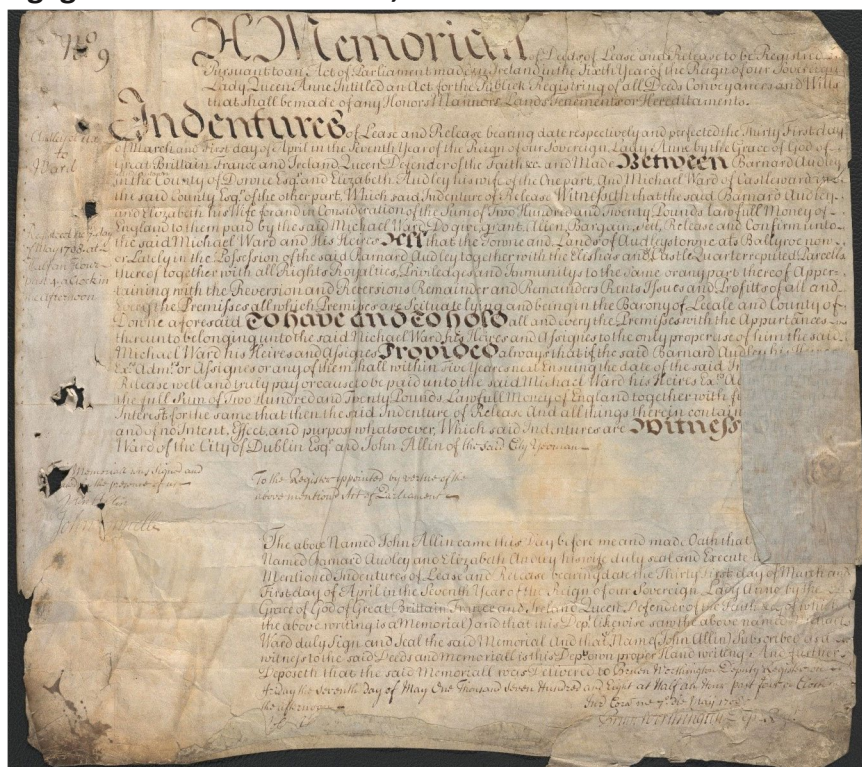 No 9
A Memorial of Deeds of Lease and Release to be Registred
Pursuant to an Act of Parliament made in Ireland in the Sixth Year of the Reign of our Sovereign
Lady Queen Anne Intitled an Act for the Publick Registring of all Deeds Conveyances and Wills
that shall be made of any Honors Mannors Lands Tenements or Hereditaments.
Indentures of Lease and Release bearing date respectively and perfected the Thirty First day
of March and First day of April in the Seventh Year of the Reign of our Sovereign Lady Anne by the Grace of God of
Great Brittain France and Ireland Queen Defender of the Faith &c. and Made Between Barnard Audley
in the County of Downe Esqr. and Elizabeth Audley his wife of the One part, And Michael Ward of Castleward in
the said County Esqr. of the other part, Which said Indenture of Release Witnesseth that the said Barnard Audley
and Elizabeth his Wife for and in Consideration of the Sum of Two Hundred and Twenty Pounds lawfull Money of
England to them paid by the said Michael Ward Do give, Grant, Alien, Bargain, Sell, Release and Confirm unto
the said Michael Ward and His Heires All that the Towne and Lands of Audleystowne als Ballyroe now
or Lately in the Possession of the said Barnard Audley together with the and Castle Quarter reputed Parcells
thereof together with all Rights Royalties, Priviledges and Immunitys to the Same or any part thereof Apper-
taining with the Reversion and Reversions Remainder and Remainders Rents Issues and Profitts of all and
Every the Premisses all which Premisses are Scituate lying and being in the Barony of Lecale and County of
Downe aforesaid To have and To hold all and every the Premisses with the Appurtances
thereunto belonging unto the said Michael Ward his Heires and Assignes to the only proper use of him the said
Michael Ward his Heires and Assignes Provided always that if the said Barnard Audley his Heires
Exrs. Admrs. or Assignes or any of them shall within Five Years next Ensuing the date of the said
Release well and truly pay or cause to be paid unto the said Michael Ward his Heires Exrs.
the full Sum of Two Hundred and Twenty Pounds Lawfull Money of England together with
Interest for the same that then the said Indenture of Release And all things therein
and of no Intent, Effect, and purpos whatsoever, Which said Indentures are Witness
Ward of the City of Dublin Esqr. and John Allin of the said City Yeoman
to
Ward
Registred the 7 day
of May 1708 at
half an hour
past 4 a Clock in
the Afternoon
Memoriall was Signed and
in the presence of us
John
To the Register Appointed by vertue of the
above mentioned Act of Parliament
The above Named John Allin came this Day before me and made Oath that
Named Barnard Audley and Elizabeth Audley his wife duly seal and Execute
Mentioned Indentures of Lease and Release bearing date the Thirty First day of March and
First day of April in the Seventh Year of the Reign of our Sovereign Lady Anne by the
Grace of God of Great Brittain France and Ireland Queen Defender of the Faith &c. (of which
the above writing is a Memorial) and that this Dept. likewise saw the above named
Ward duly Sign and Seal the said Memorial And that Name (John Allin) Subscribed as a
witness to the said Deeds and memoriall is this Depts. own proper Hand writing And further
Deposeth that the said Memoriall was Delivered to Benjn Worthington Deputy Register on
day the Seventh day of May One Thousand Seven Hundred and Eight at Half an Hour past four a Clock
the afternoon
7o die May 1708